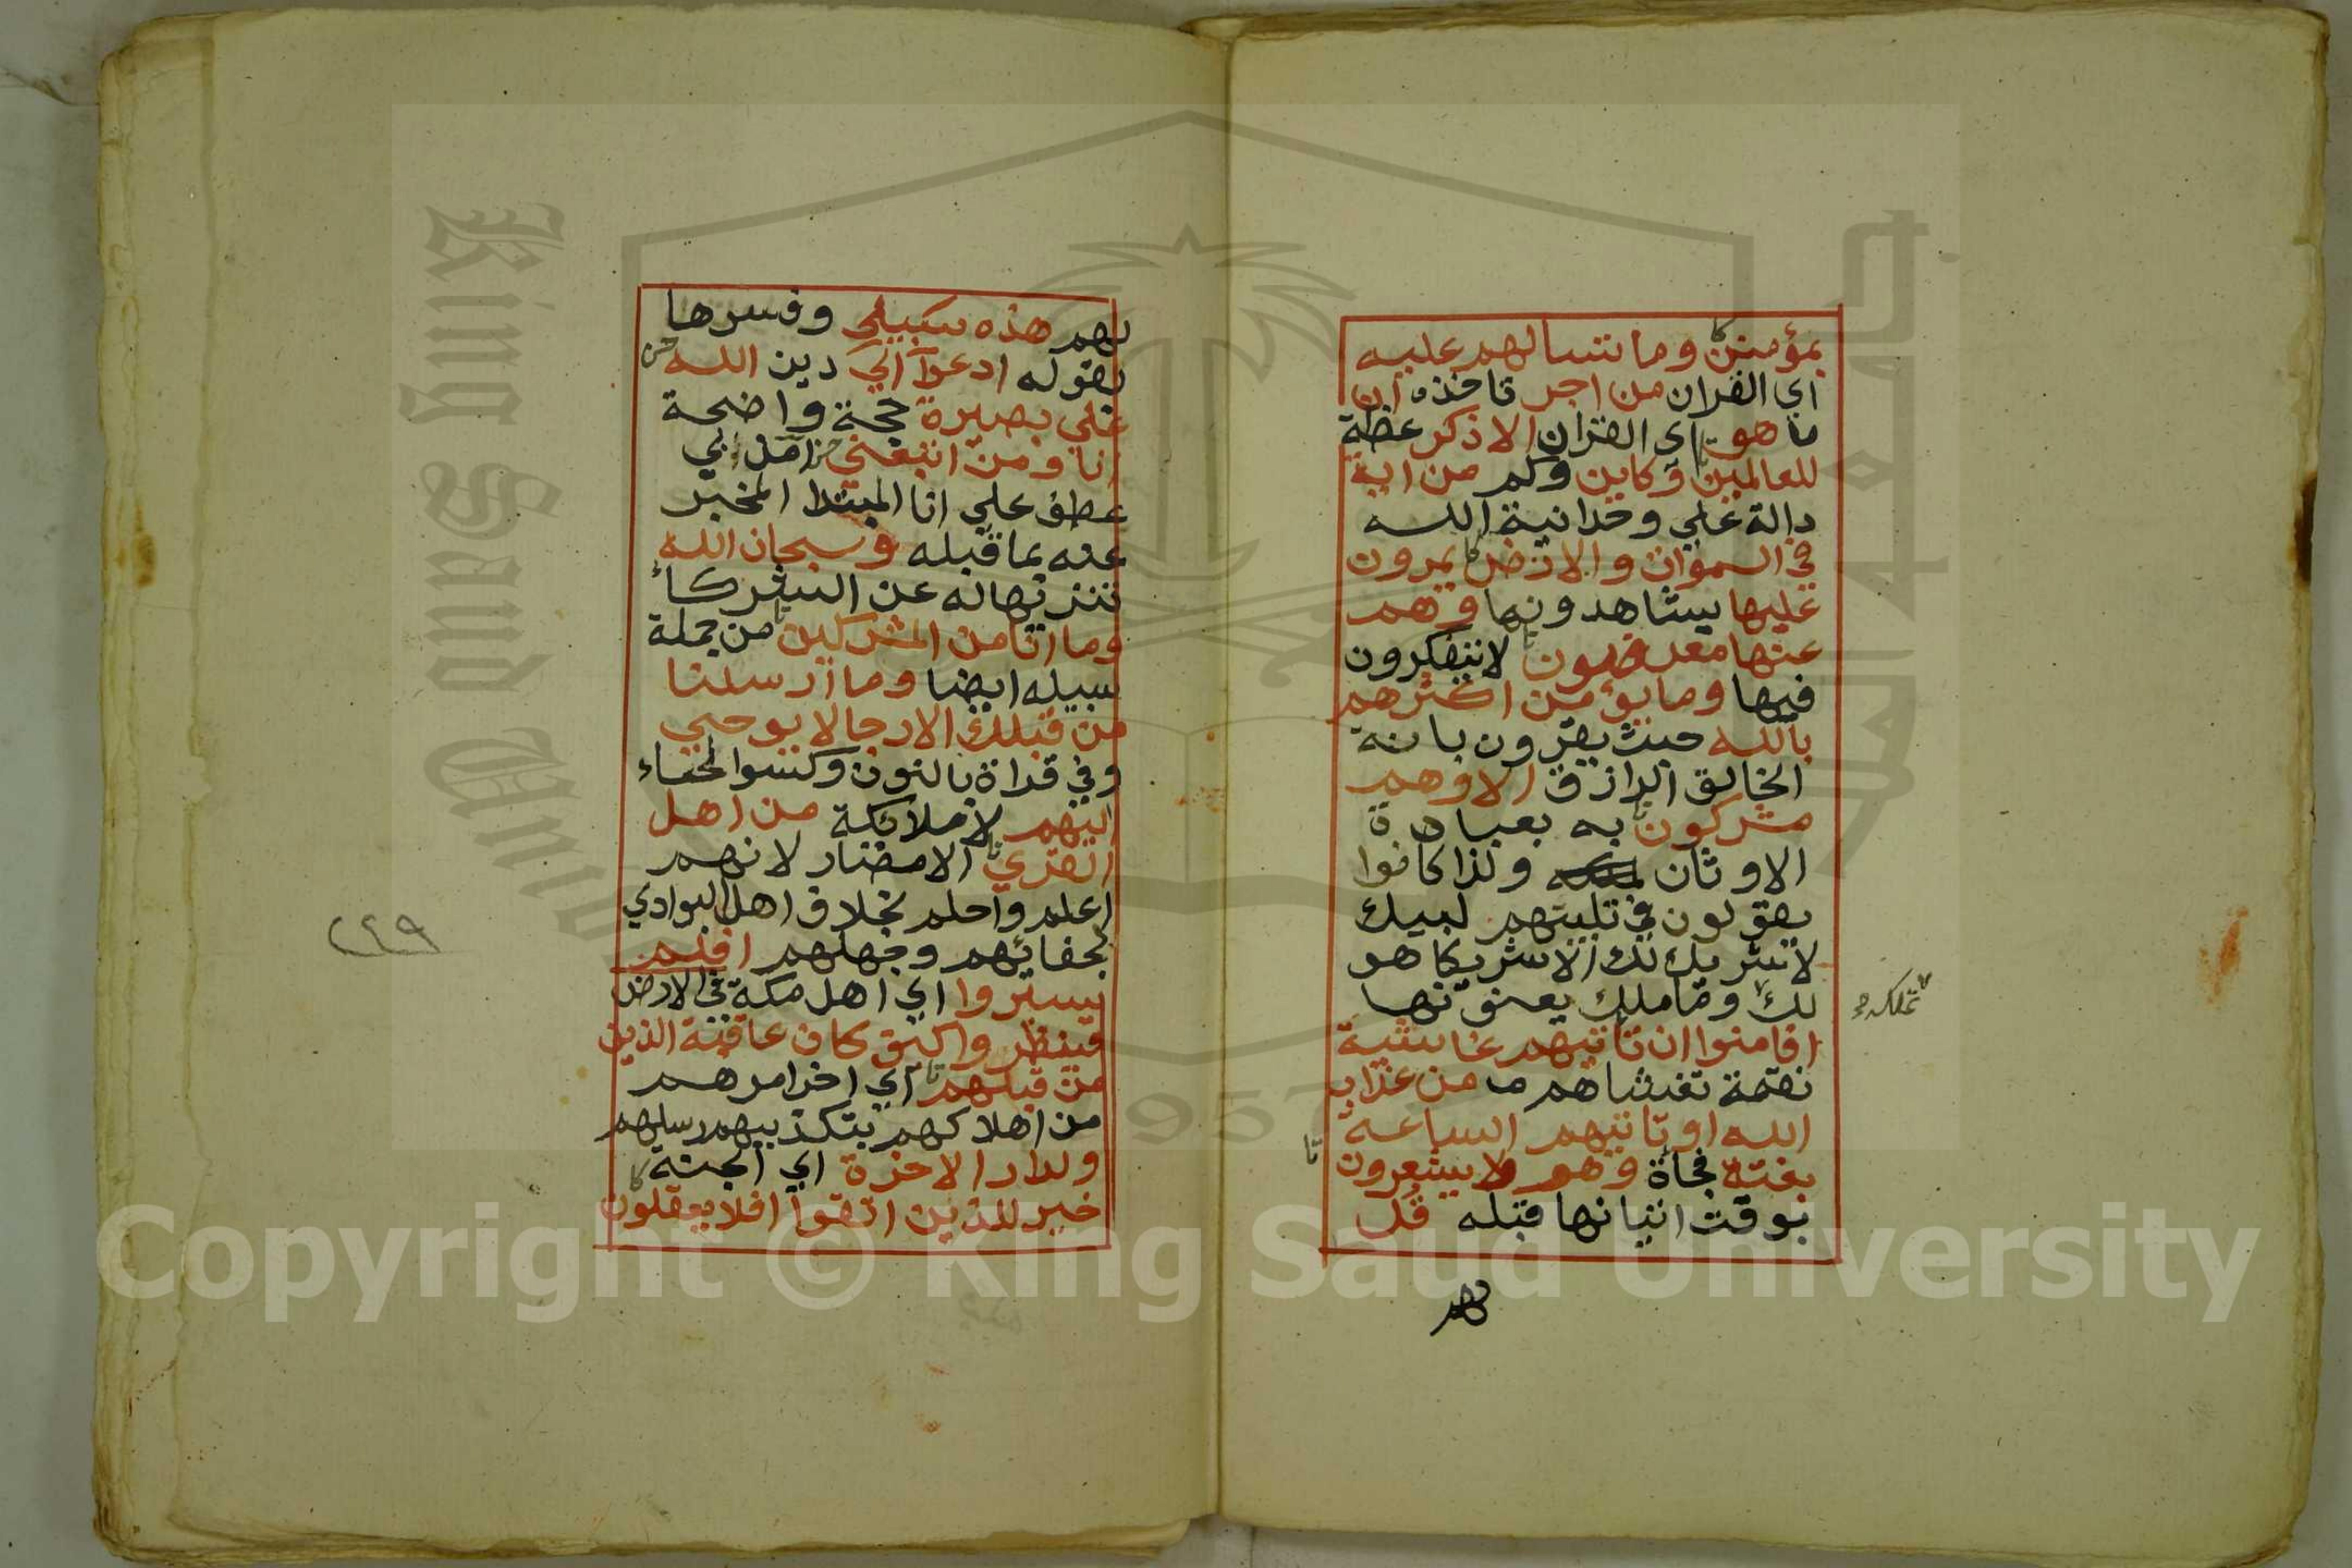 بمؤمنين وما تسالهم عليه
اي القران من اجر تاخذه ان
ما هو اي القران الا ذكر عظة
للعالمين وكاين وكم من اية
دالة علي وحدانية الله
في السموات والارض يمرون
عليها يشاهدونها وهم
عنها معرضون لا يتفكرون
فيها وما يؤمن اكثرهم
بالله حيث يقرون بانه
الخالق الرازق الا وهم
مشركون به بعبادة
الاوثان ولذا كانوا
يقولون في تلبيتهم لبيك
لا شريك لك الا شريكا هو
لك وما ملك يعنونها
تملكه
افامنوا ان تاتيهم غاشية
نقمة تغشاهم من عذاب
الله او تاتيهم الساعة
بغتة فجاة وهم لا يشعرون
بوقت اتيانها قبله قل
لهم
لهم هذه سبيلي وفسرها
بقوله ادعوا الي دين الله
علي بصيرة حجة واضحة
انا ومن اتبعني امن بي
عطف علي انا المبتدا المخبر
عنه بما قبله وسبحان الله
تنزيها له عن الشركاء
وما انا من المشركين من جملة
سبيله ايضا وما ارسلنا
من قبلك الا رجالا يوحي
وفي قراة بالنون وكسر الحاء
اليهم لا ملائكة من اهل
القري الامصار لانهم
اعلم واحلم بخلاف اهل البوادي
لجفائهم وجهلهم افلم
يسيروا اي اهل مكة في الارض
فينظروا كيف كان عاقبة الذين
من قبلهم اي اخر امرهم
من اهلاكهم بتكذيبهم رسلهم
ولدار الاخرة اي الجنة
خير للذين اتقوا افلا يعقلون
٢٢٩
King Saud University
1957
Copyright © King Saud University